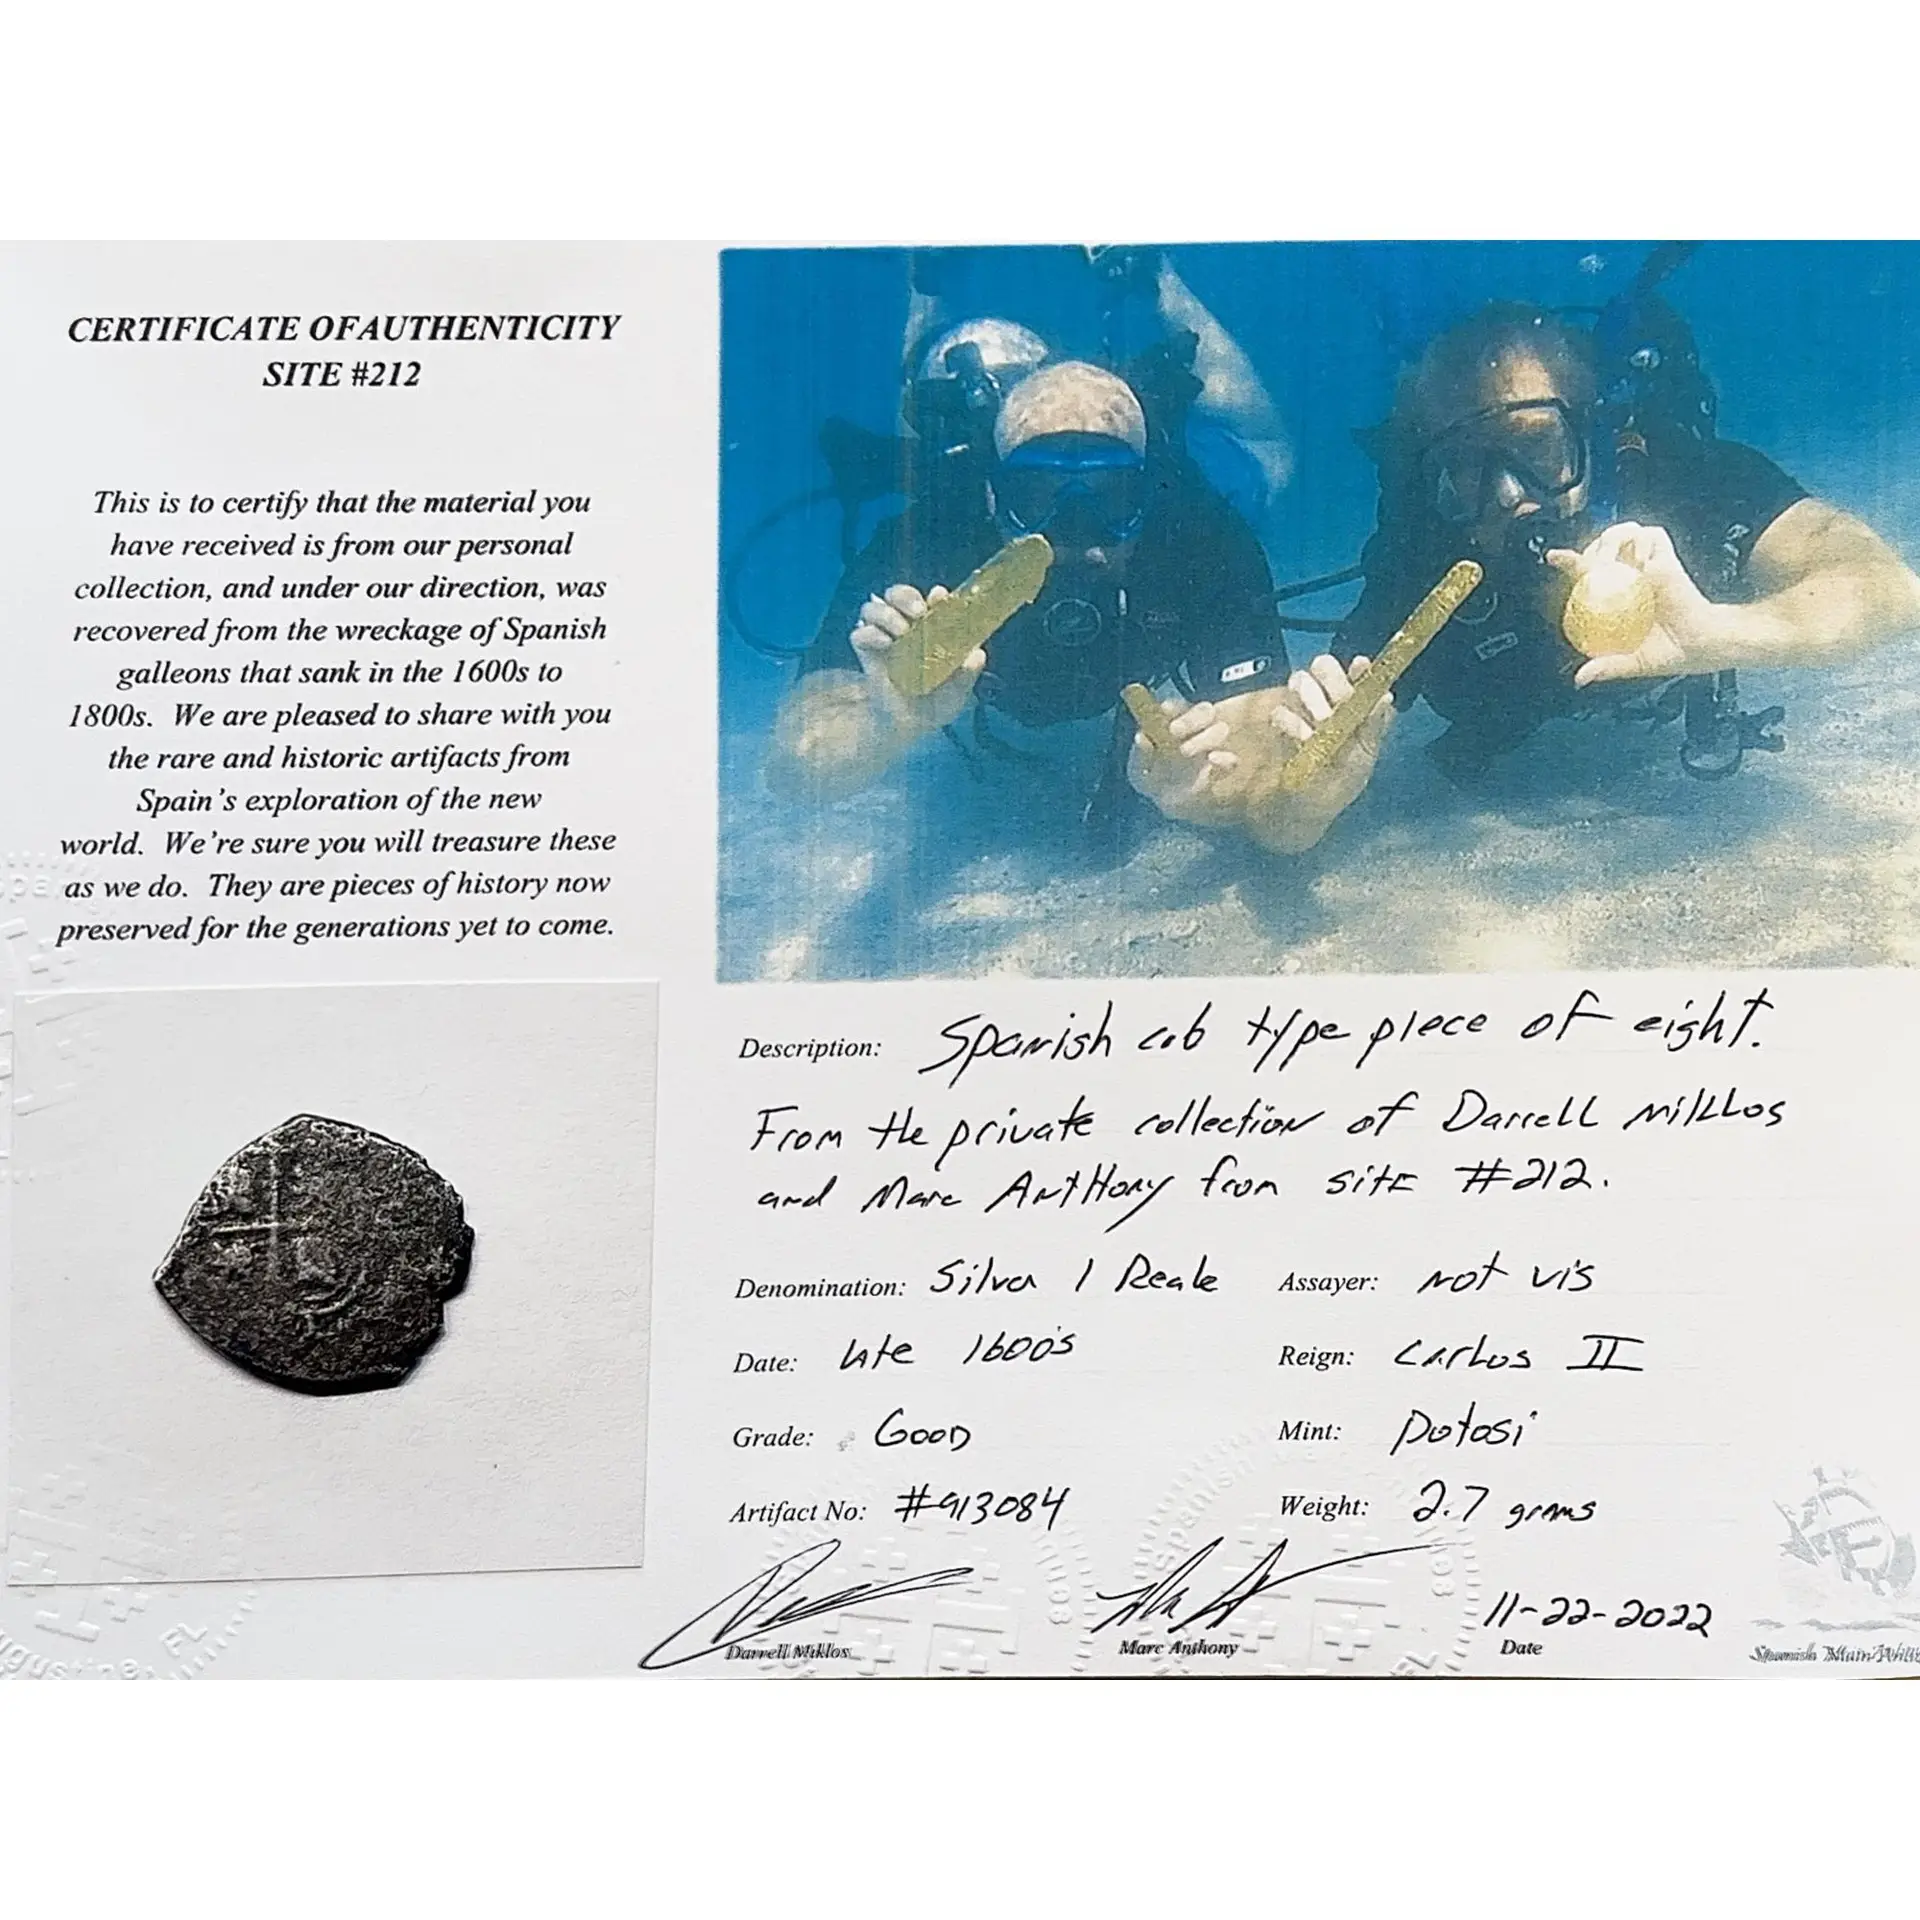 CERTIFICATE OF AUTHENTICITY
SITE #212
This is to certify that the material you
have received is from our personal
collection, and under our direction, was
recovered from the wreckage of Spanish
galleons that sank in the 1600s to
1800s. We are pleased to share with you
the rare and historic artifacts from
Spain's exploration of the new
world. We're sure you will treasure these
as we do. They are pieces of history now
preserved for the generations yet to come.
Description: Spanish cob type piece of eight.
From the private collection of Darrell Miklos
and Marc Anthony from site #212.
Denomination: Silver 1 Reale Assayer: not vis
Date: late 1600's Reign: Carlos II
Grade: Good Mint: Potosi
Artifact No: #913084 Weight: 2.7 grams
11-22-2022
Darrell Miklos Marc Anthony Date
Spanish Main